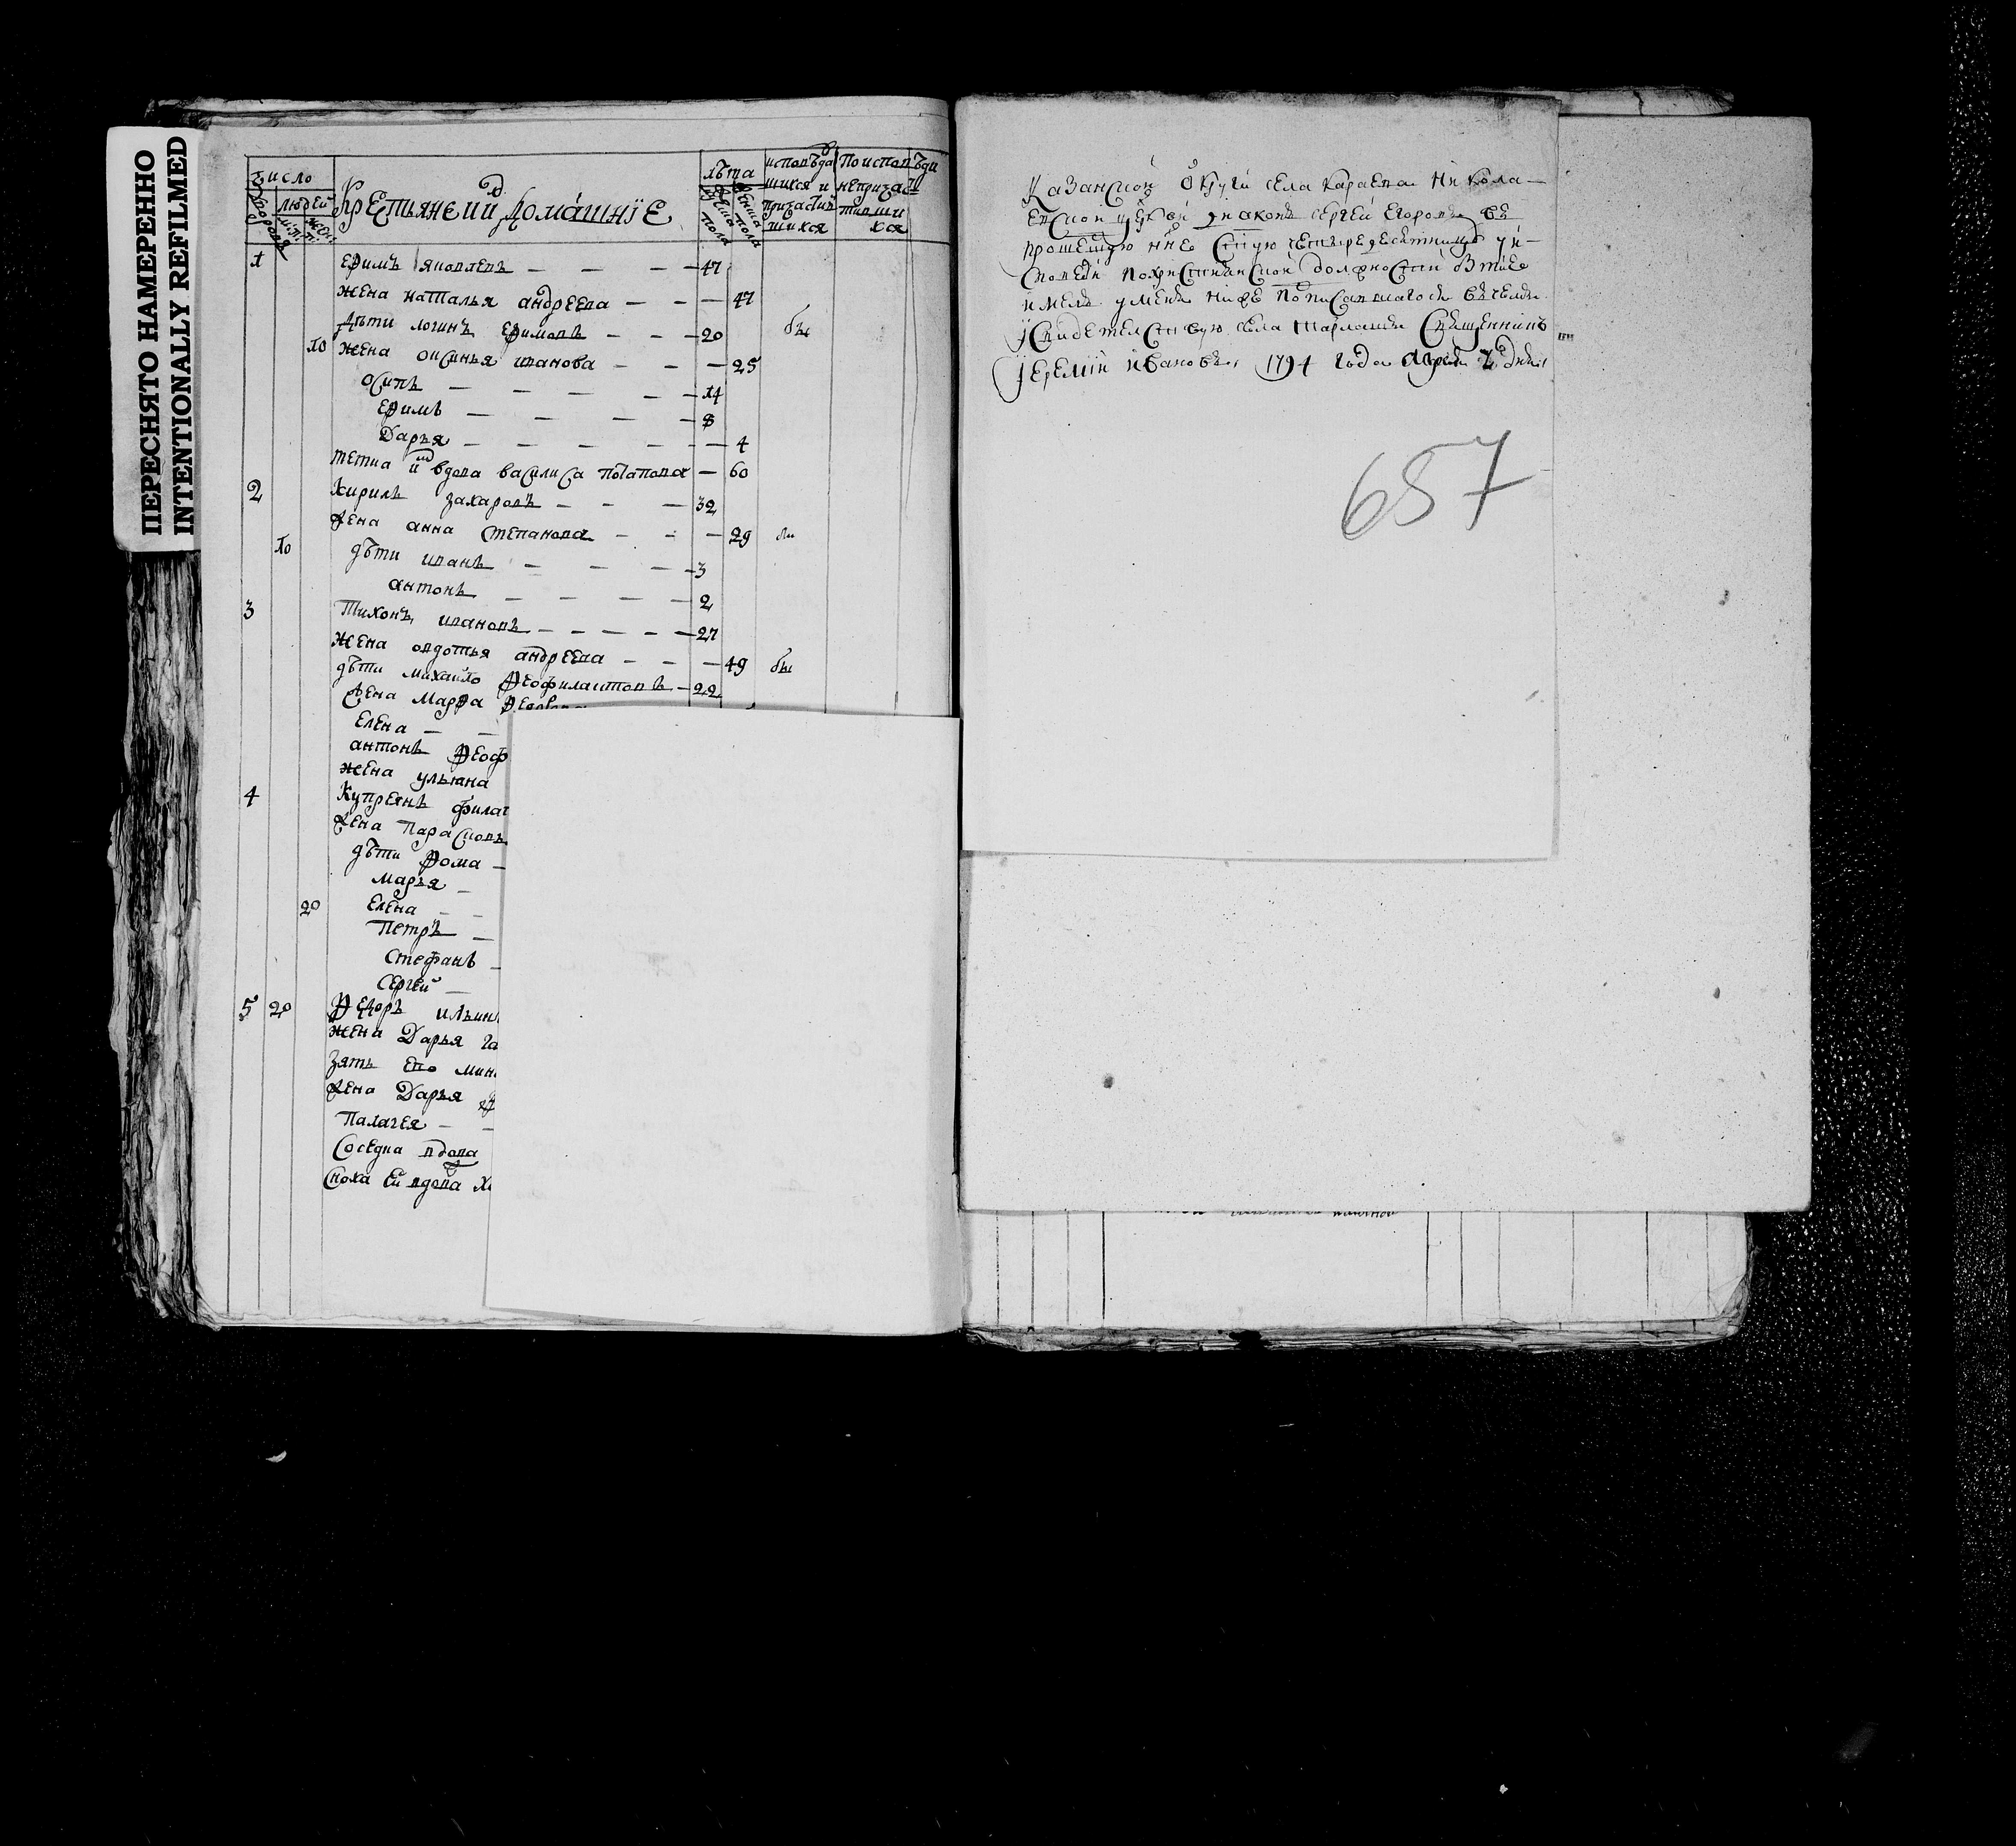 ПЕРЕСНЯТО НАМЕРЕННО
INTENTIONALLY REFILMED
число
людей
Крестьяне и их домашнїе
лѣта
исповѣда
шихся и
причастив
шихся
По исповѣди
непричас
тивши
хся
1 Ефимъ Яковлевъ — — — — 47
жена наталья андреева — — — 47
дѣти логинъ Ефимовъ — — — 20 бы
10 жена оксинья иванова — — — 25
осипъ — — — — — 14
Ефимъ — — — — 8
Дарья — — — — — — 4
тетка их вдова василиса потапова — 60
2 Кирилъ захаровъ — — — 32
жена анна степанова — — — 29 бы
10 дѣти иванъ — — — — 3
антонъ — — — — 2
3 Тихонъ ивановъ — — — — — 27
жена овдотья андреева — — — 49 бы
дѣти михайло Феофилактовъ — 22
жена Марфа
Елена — —
антонъ Феоф
жена ульяна
4 Купреянъ филат
жена Парасковь
дѣти Фома —
марья —
20 Елена — —
Петръ —
Стефанъ —
Сергей —
5 20 Федоръ ильин
жена Дарья га
зять ево мин
жена Дарья
Палагея — —
Соседка вдова
Сноха ей вдова х
Казанской округи села караева никола—
евской церкви диаконъ сергей егоровъ въ
прошедшую нне стую четыредесятницу у и—
споведи по християнской должности
имелъ у меня ниже подписавшагося въ чемъ
и свидетелствую. села шармаши Священникъ
Іеремїй ивановъ. 1794 года апреля 7 дня
657